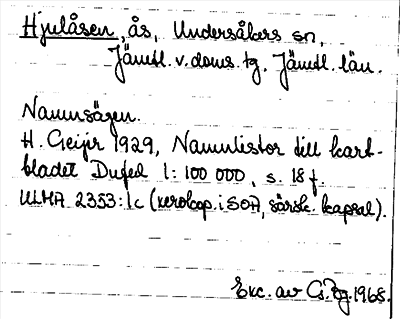 Hjulåsen, ås, Undersåkers sn,
Jämtl. v. doms. tg. Jämtl. län.
Namnsägen.
H. Geijer 1929, Namnlistor till kart-
bladet Dufed 1:100 000, s. 18 f.
ULMA 2353:1c (xerokop. i SOA, särsk. kapsel).
Exc. av 1968.